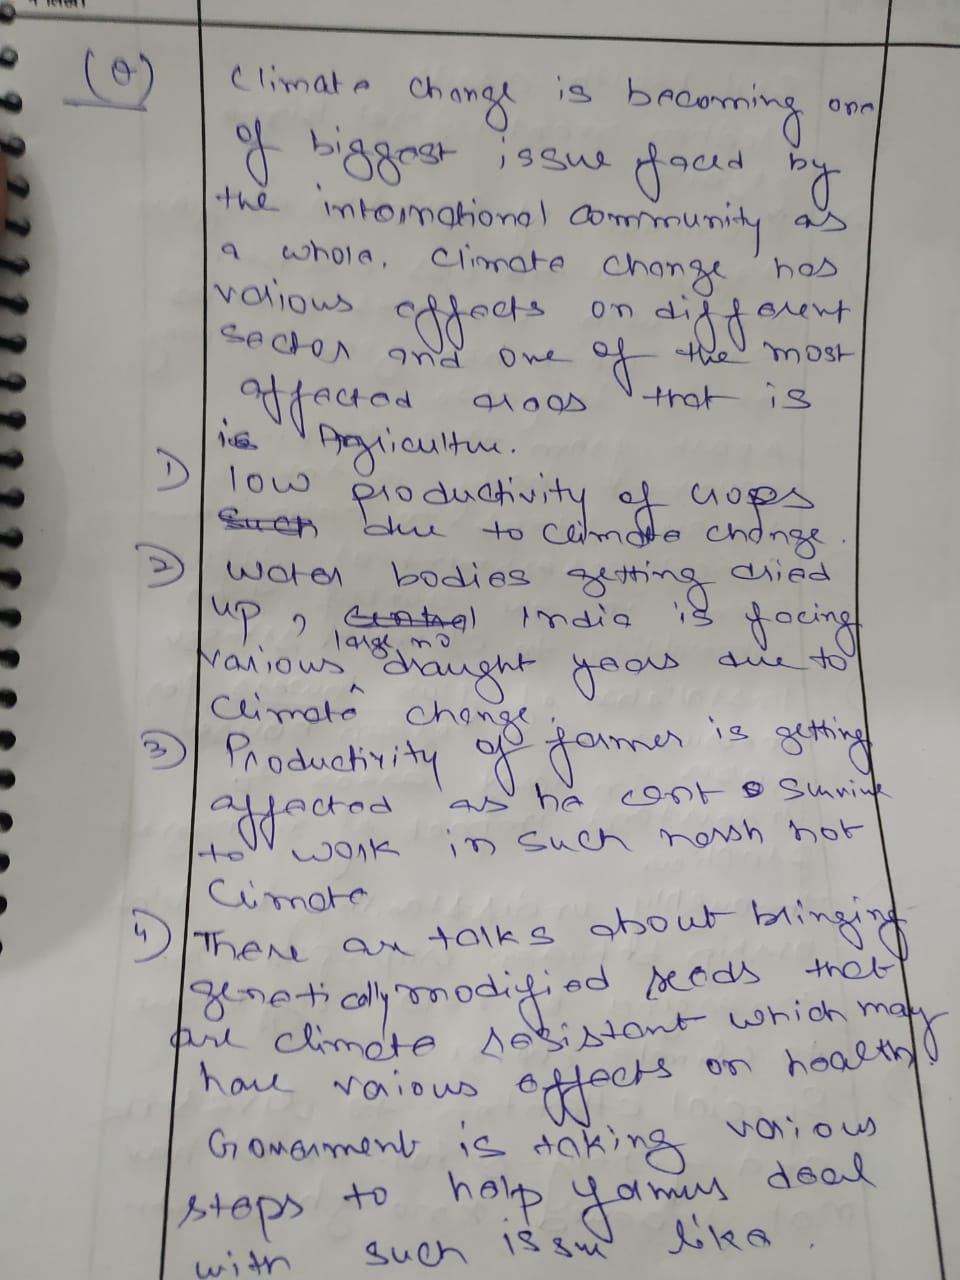 (Q)
Climate change is becoming one
of biggest issue faced by
the international community as
a whole. Climate change has
various effects on different
sector and one of the most
affected areas that is
is Agriculture.
1) low productivity of crops
such due to climate change.
2) Water bodies getting dried
up, central India is facing
large no
various draught years due to
climate change.
3) Productivity of farmer is getting
affected as he cant survive
to work in such harsh hot
climate
4) There are talks about bringing
genetically modified seeds that
are climate resistant which may
have vaious effects on health.
Government is taking various
steps to help farmers deal
with such issue like.